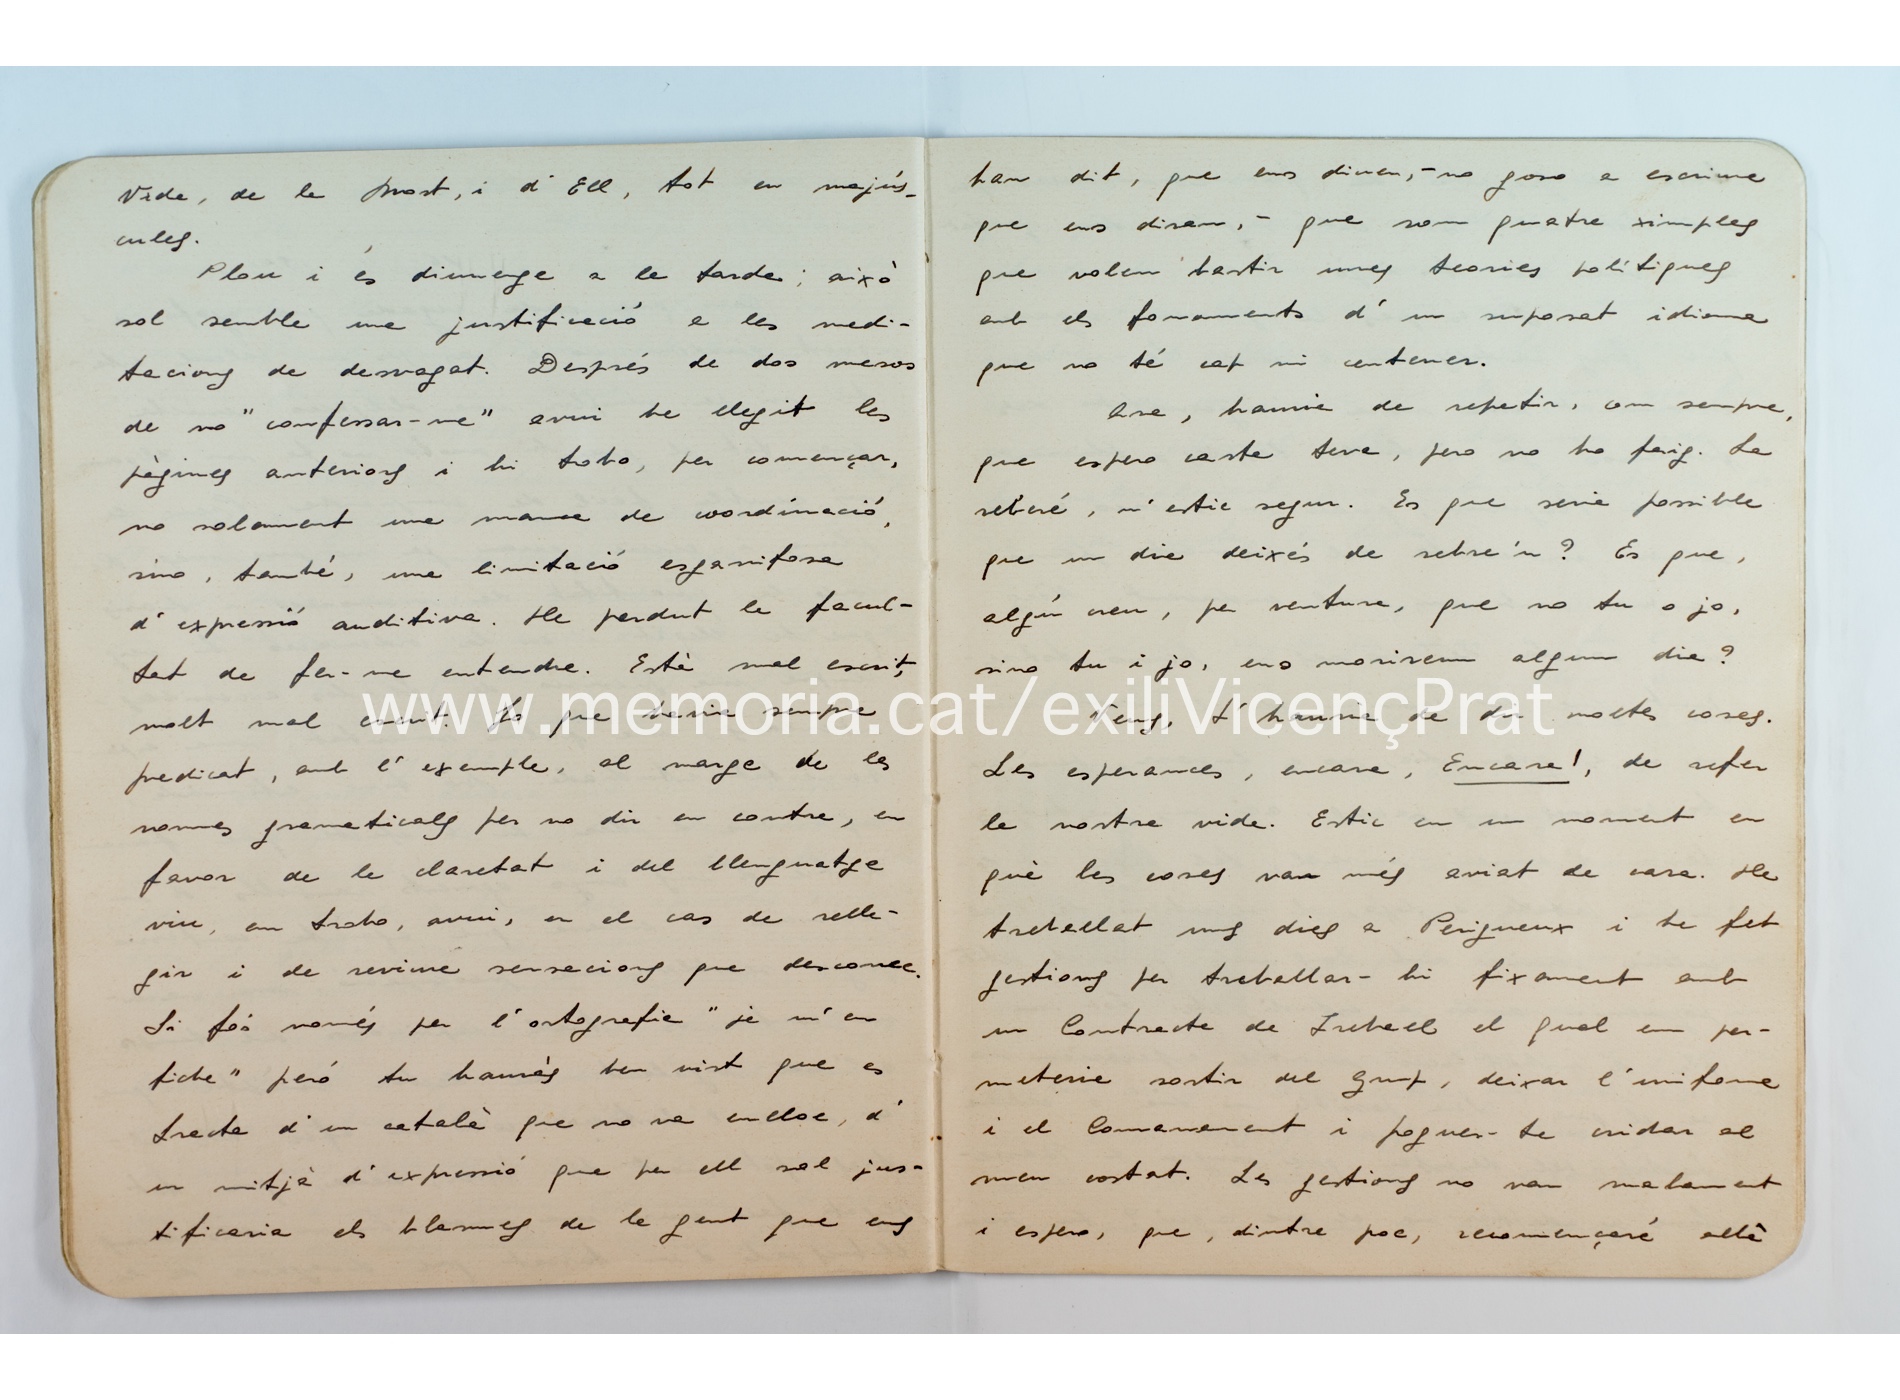 Vida, de la Mort, i d'Ell, tot en majús-
cules.
Plou i és diumenge a la tarda; això
sol sembla una justificació a les medi-
tacions de desvagat. Després de dos mesos
de no "confessar-me" avui he llegit les
pàgines anteriors i hi trobo, per començar,
no solament una manca de coordinació,
sino, també, una limitació esgarrifosa
d'expressió auditiva. He perdut la facul-
tat de fer-me entendre. Està mal escrit,
molt mal escrit. Jo que havia sempre
predicat, amb l'exemple, al marge de les
normes gramaticals per no dir en contra, en
favor de la claretat i del llenguatge
viu, em trobo, avui, en el cas de relle-
gir i de reviure sensacions que desconec.
Si fós només per l'ortografia "je m'en
fiche" però tu hauràs ben vist que es
tracta d'un català que no va enlloc, d'
un mitjà d'expressió que per ell sol jus-
tificaria els blasmes de la gent que ens
han dit, que ens diuen,- no goso a escriure
que ens diran,- que som quatre ximples
que volem bastir unes teories polítiques
amb els fonaments d'un suposat idioma
que no té cap ni centener.
Ara, hauria de repetir, com sempre,
que espero carta teva, pero no ho faig. La
rebré, n'estic segur. Es que seria possible
que un dia deixés de rebre'n? Es que,
algú creu, per ventura, que no tu o jo,
sino tu i jo, ens morirem algun dia?
Vaig, t'hauria de dir moltes coses.
Les esperances, encara, Encara!, de refer
la nostra vida. Estic en un moment en
què les coses van més aviat de cara. He
treballat uns dies a Périgueux i he fet
gestions per treballar-hi fixament amb
un Contracte de Treball el qual em per-
meteria sortir del Grup, deixar l'uniforme
i el Comanament i poguer-te cridar al
meu costat. Les gestions no van malament
i espero, que, dintre poc, recomençaré allà
www.memoria.cat/exiliVicençPrat